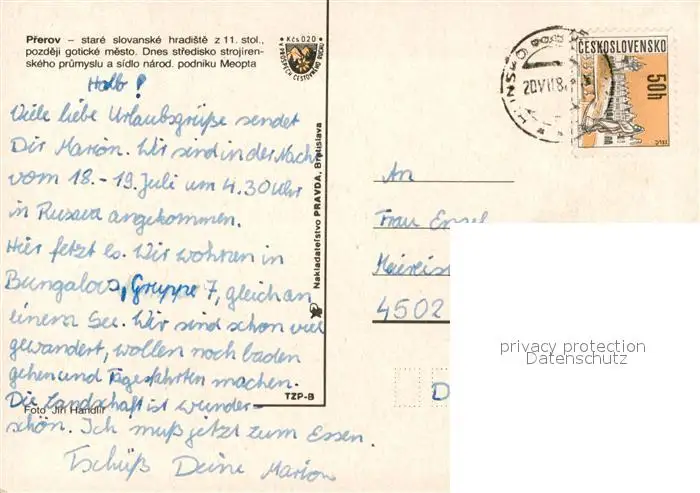 Přerov – staré slovanské hradiště z 11. stol.,
později gotické město. Dnes středisko strojíren-
ského průmyslu a sídlo národ. podniku Meopta
Kčs 0,20
VE PROSPĚCH CESTOVNÍHO RUCHU
Hallo!
Viele liebe Urlaubsgrüße sendet
Dir Marion. Wir sind in der Nacht
vom 18. - 19. Juli um 4.30 Uhr
in angekommen.
Hier fetzt es. Wir wohnen in
Bungalows, Gruppe 7, gleich an
einem See. Wir sind schon viel
gewandert, wollen noch baden
gehen und Tagesfahrten machen.
Die Landschaft ist wunder-
schön. Ich muß jetzt zum Essen.
Tschüß Deine Marion
Foto Jiří Handlíř
Nakladateľstvo PRAVDA, Bratislava
TZP-B
HLINSKO
20 VII 8
ČESKOSLOVENSKO
50h
An
Frau Engel
4502
D
privacy protection
Datenschutz